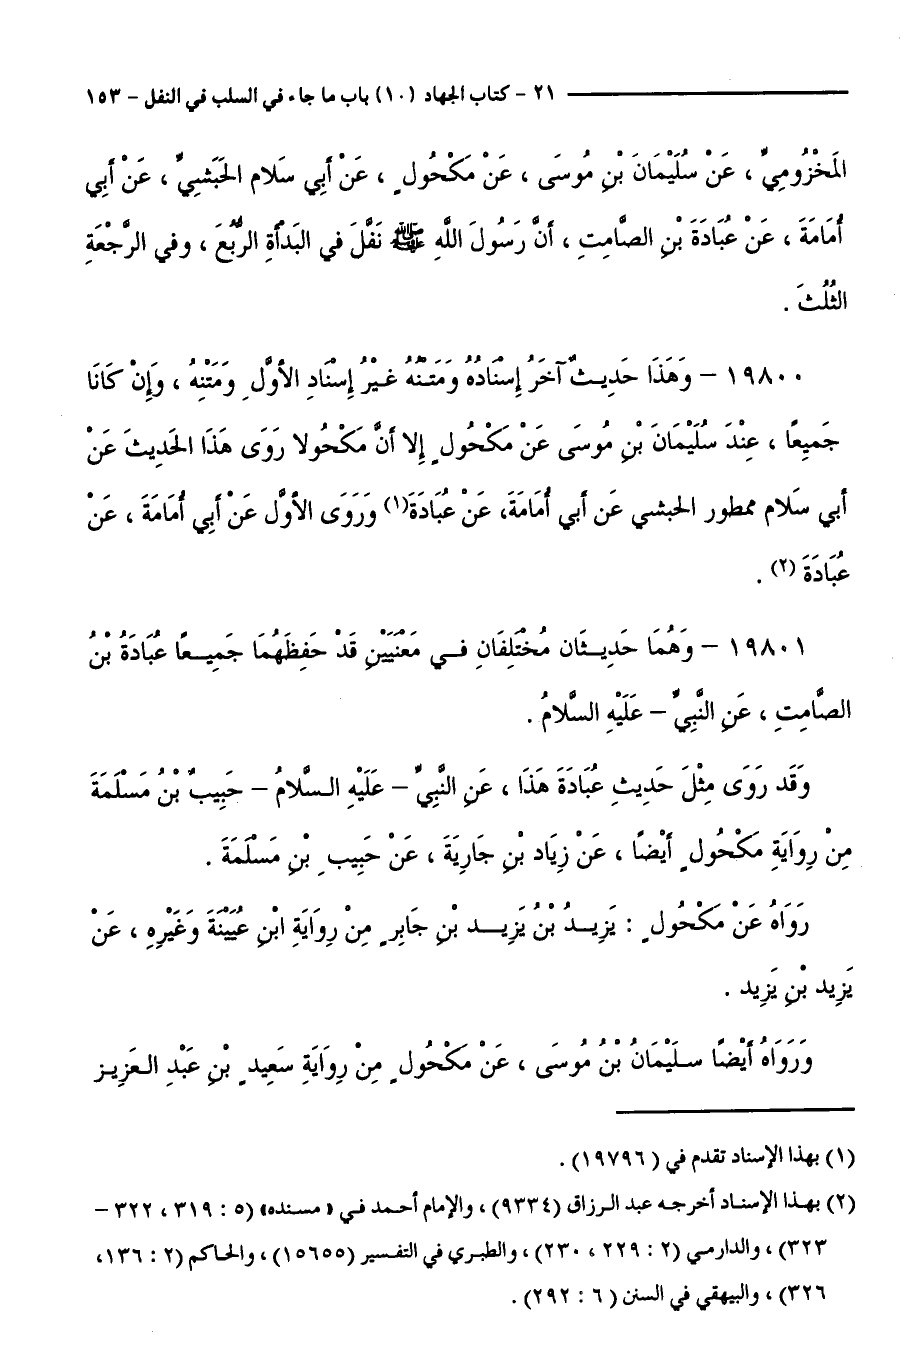 ٢١ - كتاب الجهاد (١٠) باب ما جاء في السلب في النفل - ١٥٣
المَخْزُومِيِّ ، عَنْ سُلَيْمَانَ بْنِ مُوسَى ، عَنْ مَكْحُولٍ ، عَنْ أَبِي سَلام الحَبَشِيِّ ، عَنْ أَبِي
أُمَامَةَ ، عَنْ عُبَادَةَ بْنِ الصَّامِتِ ، أَنَّ رَسُولَ اللَّهِ ﷺ نَفَّلَ في البَدْأَةِ الرُّبُعَ ، وفي الرَّجْعَةِ
الثُلُثَ .
١٩٨٠٠ - وَهَذَا حَدِيثٌ آخَرُ إِسْنَادُهُ وَمَتْنُهُ غَيْرُ إِسْنَادِ الأوَّلِ وَمَتْنِهُ ، وَإِنْ كَانَا
جَمِيعًا ، عِنْدَ سُلَيْمَانَ بْنِ مُوسَى عَنْ مَكْحُولٍ إِلا أَنَّ مَكْحُولا رَوَى هَذَا الحَدِيثَ عَنْ
أبي سَلام ممطور الحبشي عَن أبي أُمَامَةَ، عَنْ عُبَادَةَ(١) وَرَوَى الأوَّل عَنْ أَبِي أُمَامَةَ ، عَنْ
عُبَادَةَ (٢) .
١٩٨٠١ - وَهُمَا حَدِيثَان مُخْتَلِفَانِ فِي مَعْنَيَيْنِ قَدْ حَفِظَهُمَا جَمِيعًا عُبَادَةُ بْنُ
الصَّامِتِ ، عَنِ النَّبِيِّ - عَلَيْهِ السَّلامُ .
وَقَد رَوَى مِثْلَ حَدِيثِ عُبَادَةَ هَذَا ، عَنِ النَّبِيِّ - عَلَيْهِ السَّلامُ - حَبِيبُ بْنُ مَسْلَمَةَ
مِنْ رِوَايَةِ مَكْحُولٍ أَيْضًا ، عَنْ زِيَاد بْنِ جَارِيَةَ ، عَنْ حَبِيبِ بْنِ مَسْلَمَةَ .
رَوَاهُ عَنْ مَكْحُولٍ : يَزِيدُ بْنُ يَزِيد بْنِ جَابِرٍ مِنْ رِوَايَةِ ابْنِ عُيَيْنَةَ وَغَيْرِهِ ، عَنْ
يَزِيد بْنِ يَزِيد .
وَرَوَاهُ أَيْضًا سلَيْمَانُ بْنُ مُوسَى ، عَنْ مَكْحُولٍ مِنْ رِوَايَةِ سَعِيدِ بْنِ عَبْدِ العَزِيز
(١) بهذا الإسناد تقدم في ( ١٩٧٩٦) .
(٢) بهذا الإسناد أخرجه عبد الرزاق (٩٣٣٤) ، والإمام أحمد في « مسنده» (٥ : ٣١٩ ، ٣٢٢ -
٣٢٣) ، والدارمي (٢ : ٢٢٩ ، ٢٣٠) ، والطبري في التفسير (١٥٦٥٥) ، والحاكم (٢ : ١٣٦،
٣٢٦) ، والبيهقي في السنن ( ٦ : ٢٩٢) .